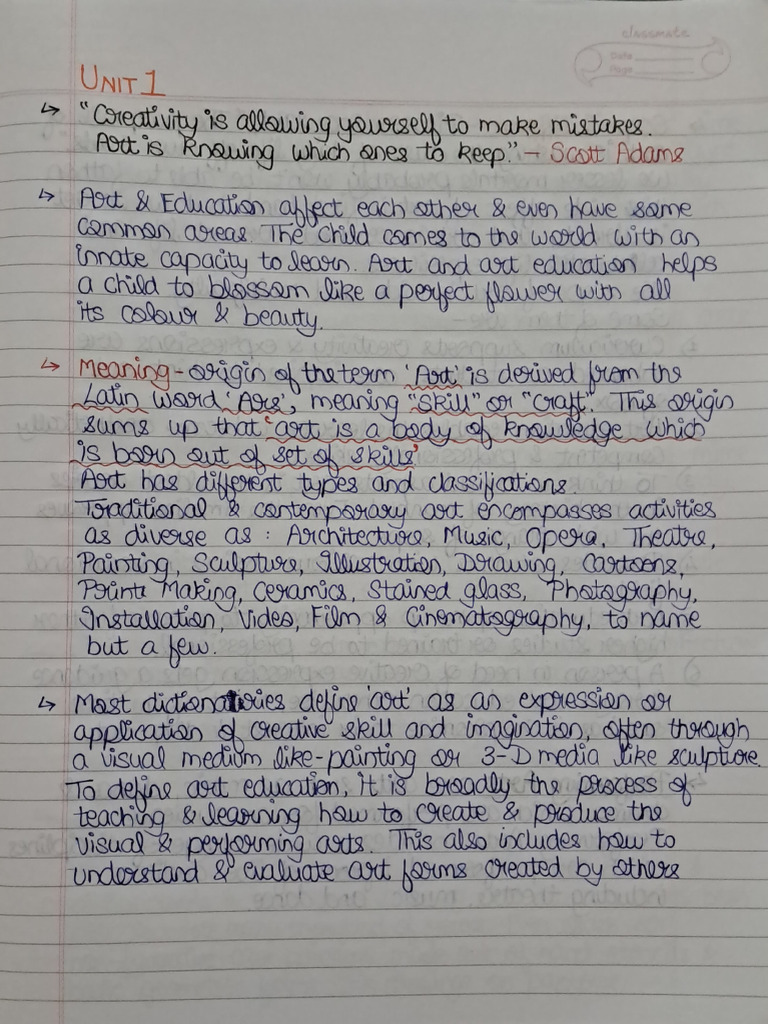 classmate
Date
Page
UNIT 1
↳ "Creativity is allowing yourself to make mistakes.
Art is knowing which ones to keep." - Scott Adams
↳ Art & Education affect each other & even have some
common areas. The child comes to the world with an
innate capacity to learn. Art and art education helps
a child to blossom like a perfect flower with all
its colour & beauty.
↳ Meaning - origin of the term 'Art' is derived from the
Latin word 'Ars', meaning "Skill" or "Craft". This origin
sums up that 'art is a body of knowledge which
is born out of set of skills'
Art has different types and classifications.
Traditional & contemporary art encompasses activities
as diverse as : Architecture, Music, Opera, Theatre,
Painting, Sculpture, Illustration, Drawing, Cartoons,
Print Making, Ceramics, Stained glass, Photography,
Installation, Video, Film & Cinematography, to name
but a few.
↳ Most dictionaries define 'art' as an expression or
application of creative skill and imagination, often through
a visual medium like-painting or 3-D media like sculpture.
To define art education, it is broadly the process of
teaching & learning how to create & produce the
visual & performing arts. This also includes how to
understand & evaluate art forms created by others